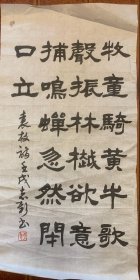 牧童騎黃牛歌
聲振林樾欲意
捕鳴蟬忽然閉
口立
袁枚詩壬戌書